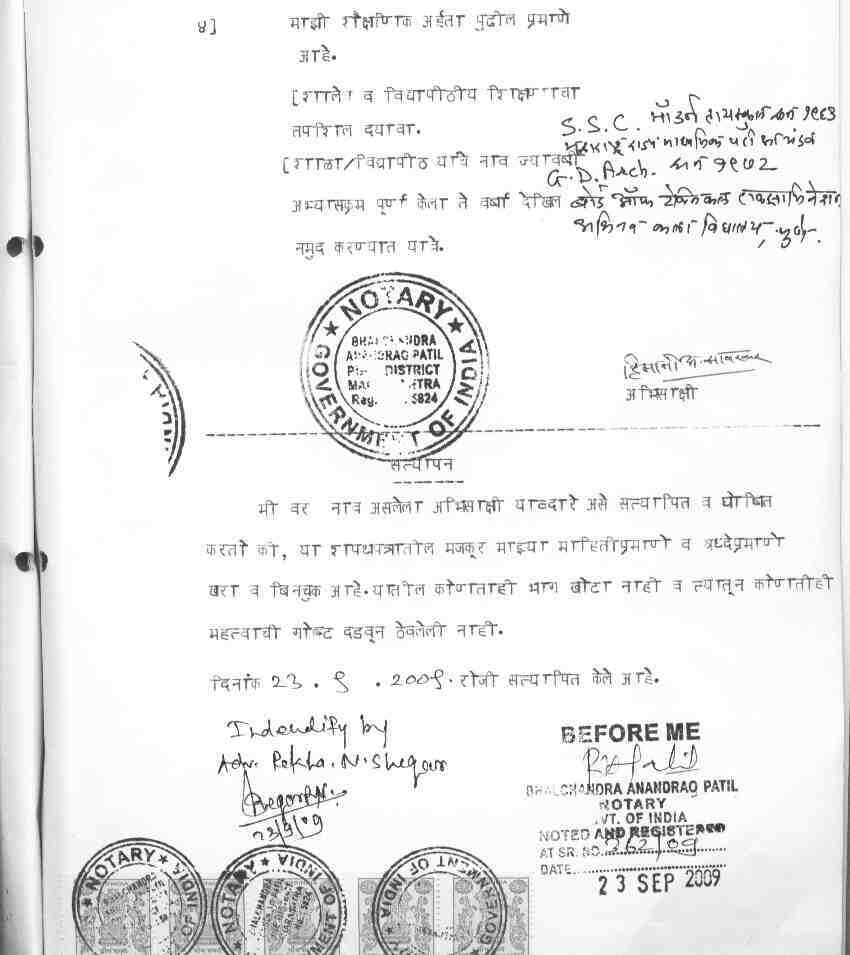 ४]
माझी शैक्षणिक अर्हता पुढील प्रमाणे
आहे.
[शालेय व विद्यापीठीय शिक्षणाचा
तपशिल दयावा.
[शाळा/विद्यापीठ याचे नाव ज्यावर्षी
अभ्यासक्रम पूर्ण केला ते वर्षा देखिल
नमुद करण्यात यावे.
S.S.C. मॉडर्न हायस्कुल सन १९६३
महाराष्ट्र राज्य माध्यमिक
G.D.Arch. सन १९७२
बोर्ड ऑफ टेक्निकल एक्झामिनेशन
अभिनव कला विद्यालय, पुणे.
NOTARY
GOVERNMENT OF INDIA
BHALCHANDRA
ANANDRAO PATIL
DISTRICT
Reg. 5824
हिमानी अ. सावरकर
अभिसाक्षी
सत्यापन
मी वर नाव असलेला अभिसाक्षी याव्दारे असे सत्यापित व घोषित
करतो की, या शपथपत्रातील मजकूर माझ्या माहितीप्रमाणे व श्रध्देप्रमाणे
खरा व बिनचुक आहे.यातील कोणताही भाग खोटा नाही व त्यातून कोणतीही
महत्वाची गोष्ट दडवून ठेवलेली नाही.
दिनांक 23 . 9 . 2009. रोजी सत्यापित केले आहे.
Indendify by
Adv. Rekha. N. Shegaur
23/9/09
BEFORE ME
BHALCHANDRA ANANDRAO PATIL
NOTARY
VT. OF INDIA
NOTED AND REGISTERED
AT SR. NO. 262/09
DATE
23 SEP 2009
NOTARY
INDIA
NOTARY
INDIA
GOVERNMENT OF INDIA